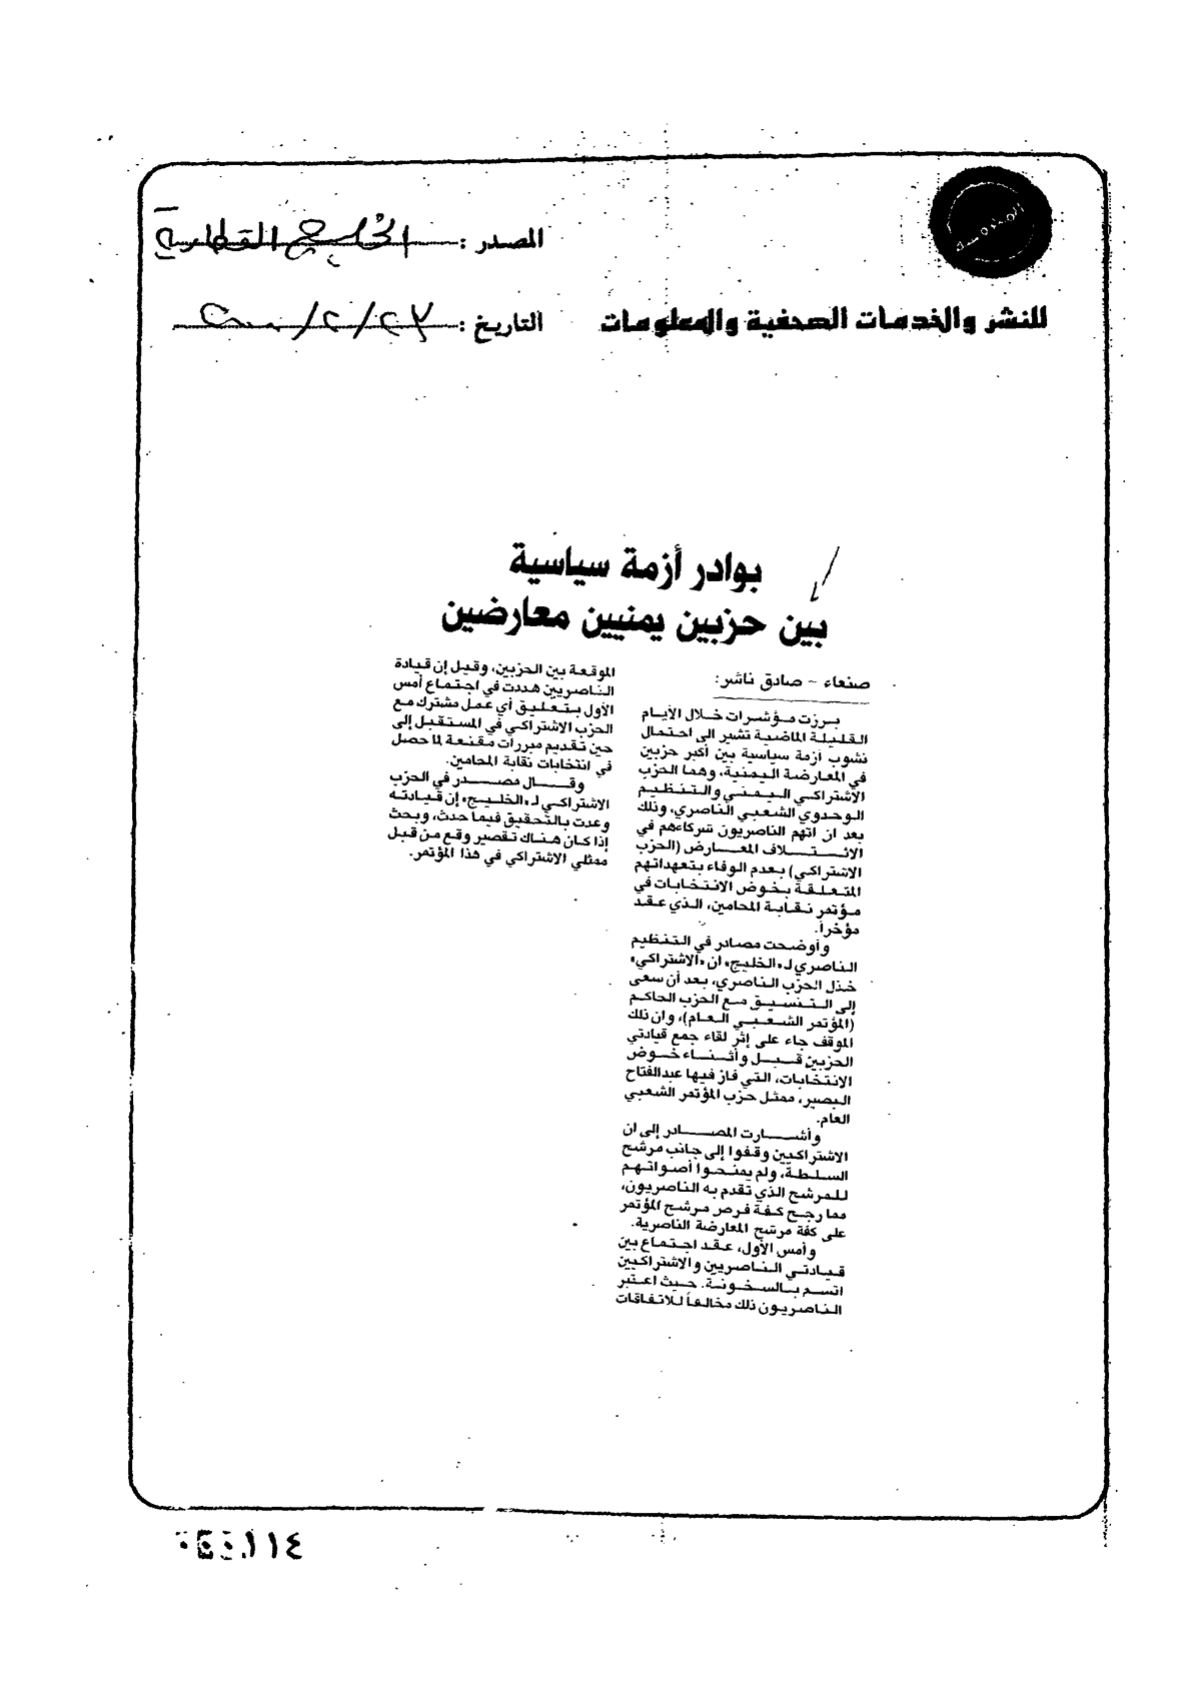 المصدر : الخليج القطرية
للنشر والخدمات الصحفية والمعلومات
التاريخ : ٢٣/٢/٢٠٠٠
بوادر أزمة سياسية
بين حزبين يمنيين معارضين
صنعاء - صادق ناشر:
برزت مؤشرات خلال الأيام
القليلة الماضية تشير الى احتمال
نشوب أزمة سياسية بين أكبر حزبين
في المعارضة اليمنية، وهما الحزب
الاشتراكي اليمني والتنظيم
الوحدوي الشعبي الناصري، وذلك
بعد ان اتهم الناصريون شركاءهم في
الائتلاف المعارض (الحزب
الاشتراكي) بعدم الوفاء بتعهداتهم
المتعلقة بخوض الانتخابات في
مؤتمر نقابة المحامين، الذي عقد
مؤخراً.
وأوضحت مصادر في التنظيم
الناصري لـ «الخليج» ان «الاشتراكي»
خذل الحزب الناصري، بعد أن سعى
إلى التنسيق مع الحزب الحاكم
(المؤتمر الشعبي العام)، وان ذلك
الموقف جاء على إثر لقاء جمع قيادتي
الحزبين قبل وأثناء خوض
الانتخابات، التي فاز فيها عبدالفتاح
البصير، ممثل حزب المؤتمر الشعبي
العام.
وأشارت المصادر إلى ان
الاشتراكيين وقفوا إلى جانب مرشح
السلطة، ولم يمنحوا أصواتهم
للمرشح الذي تقدم به الناصريون،
مما رجح كفة فرص مرشح المؤتمر
على كفة مرشح المعارضة الناصرية.
وأمس الأول، عقد اجتماع بين
قيادتي الناصريين والاشتراكيين
اتسم بالسخونة. حيث اعتبر
الناصريون ذلك مخالفاً للاتفاقات
الموقعة بين الحزبين، وقيل إن قيادة
الناصريين هددت في اجتماع أمس
الأول بتعليق أي عمل مشترك مع
الحزب الاشتراكي في المستقبل إلى
حين تقديم مبررات مقنعة لما حصل
في انتخابات نقابة المحامين.
وقال مصدر في الحزب
الاشتراكي لـ «الخليج» إن قيادته
وعدت بالتحقيق فيما حدث، وبحث
إذا كان هناك تقصير وقع من قبل
ممثلي الاشتراكي في هذا المؤتمر.